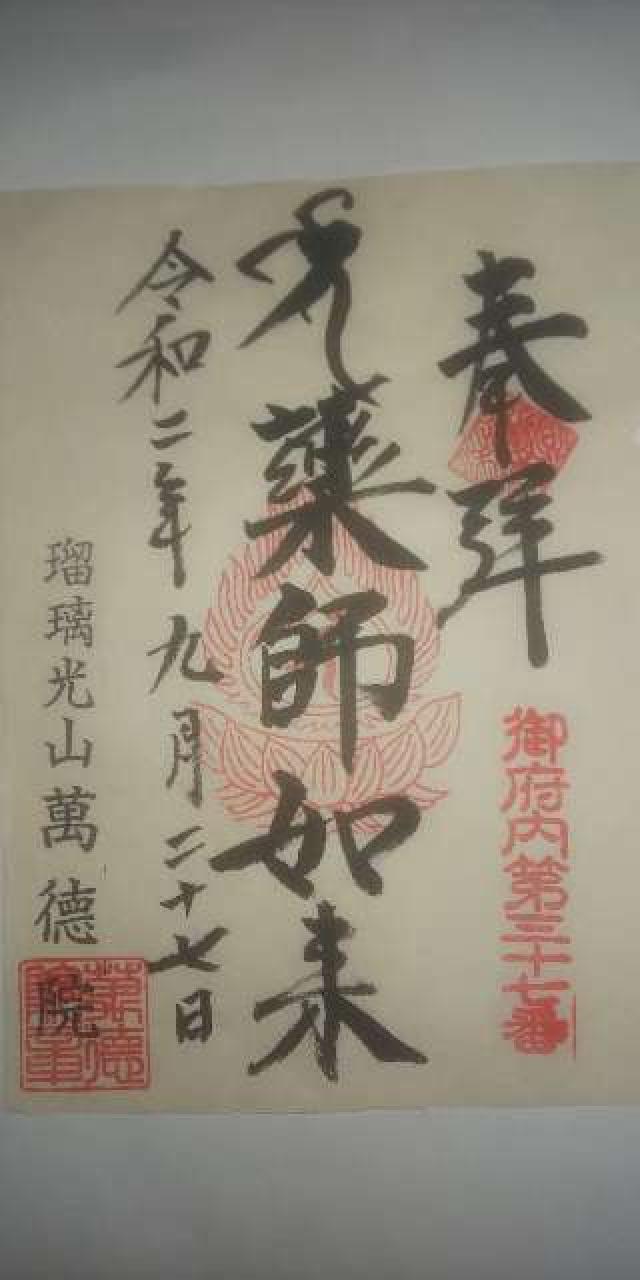 奉拝
御府内第三十七番
薬師如来
令和二年九月二十七日
瑠璃光山萬德院